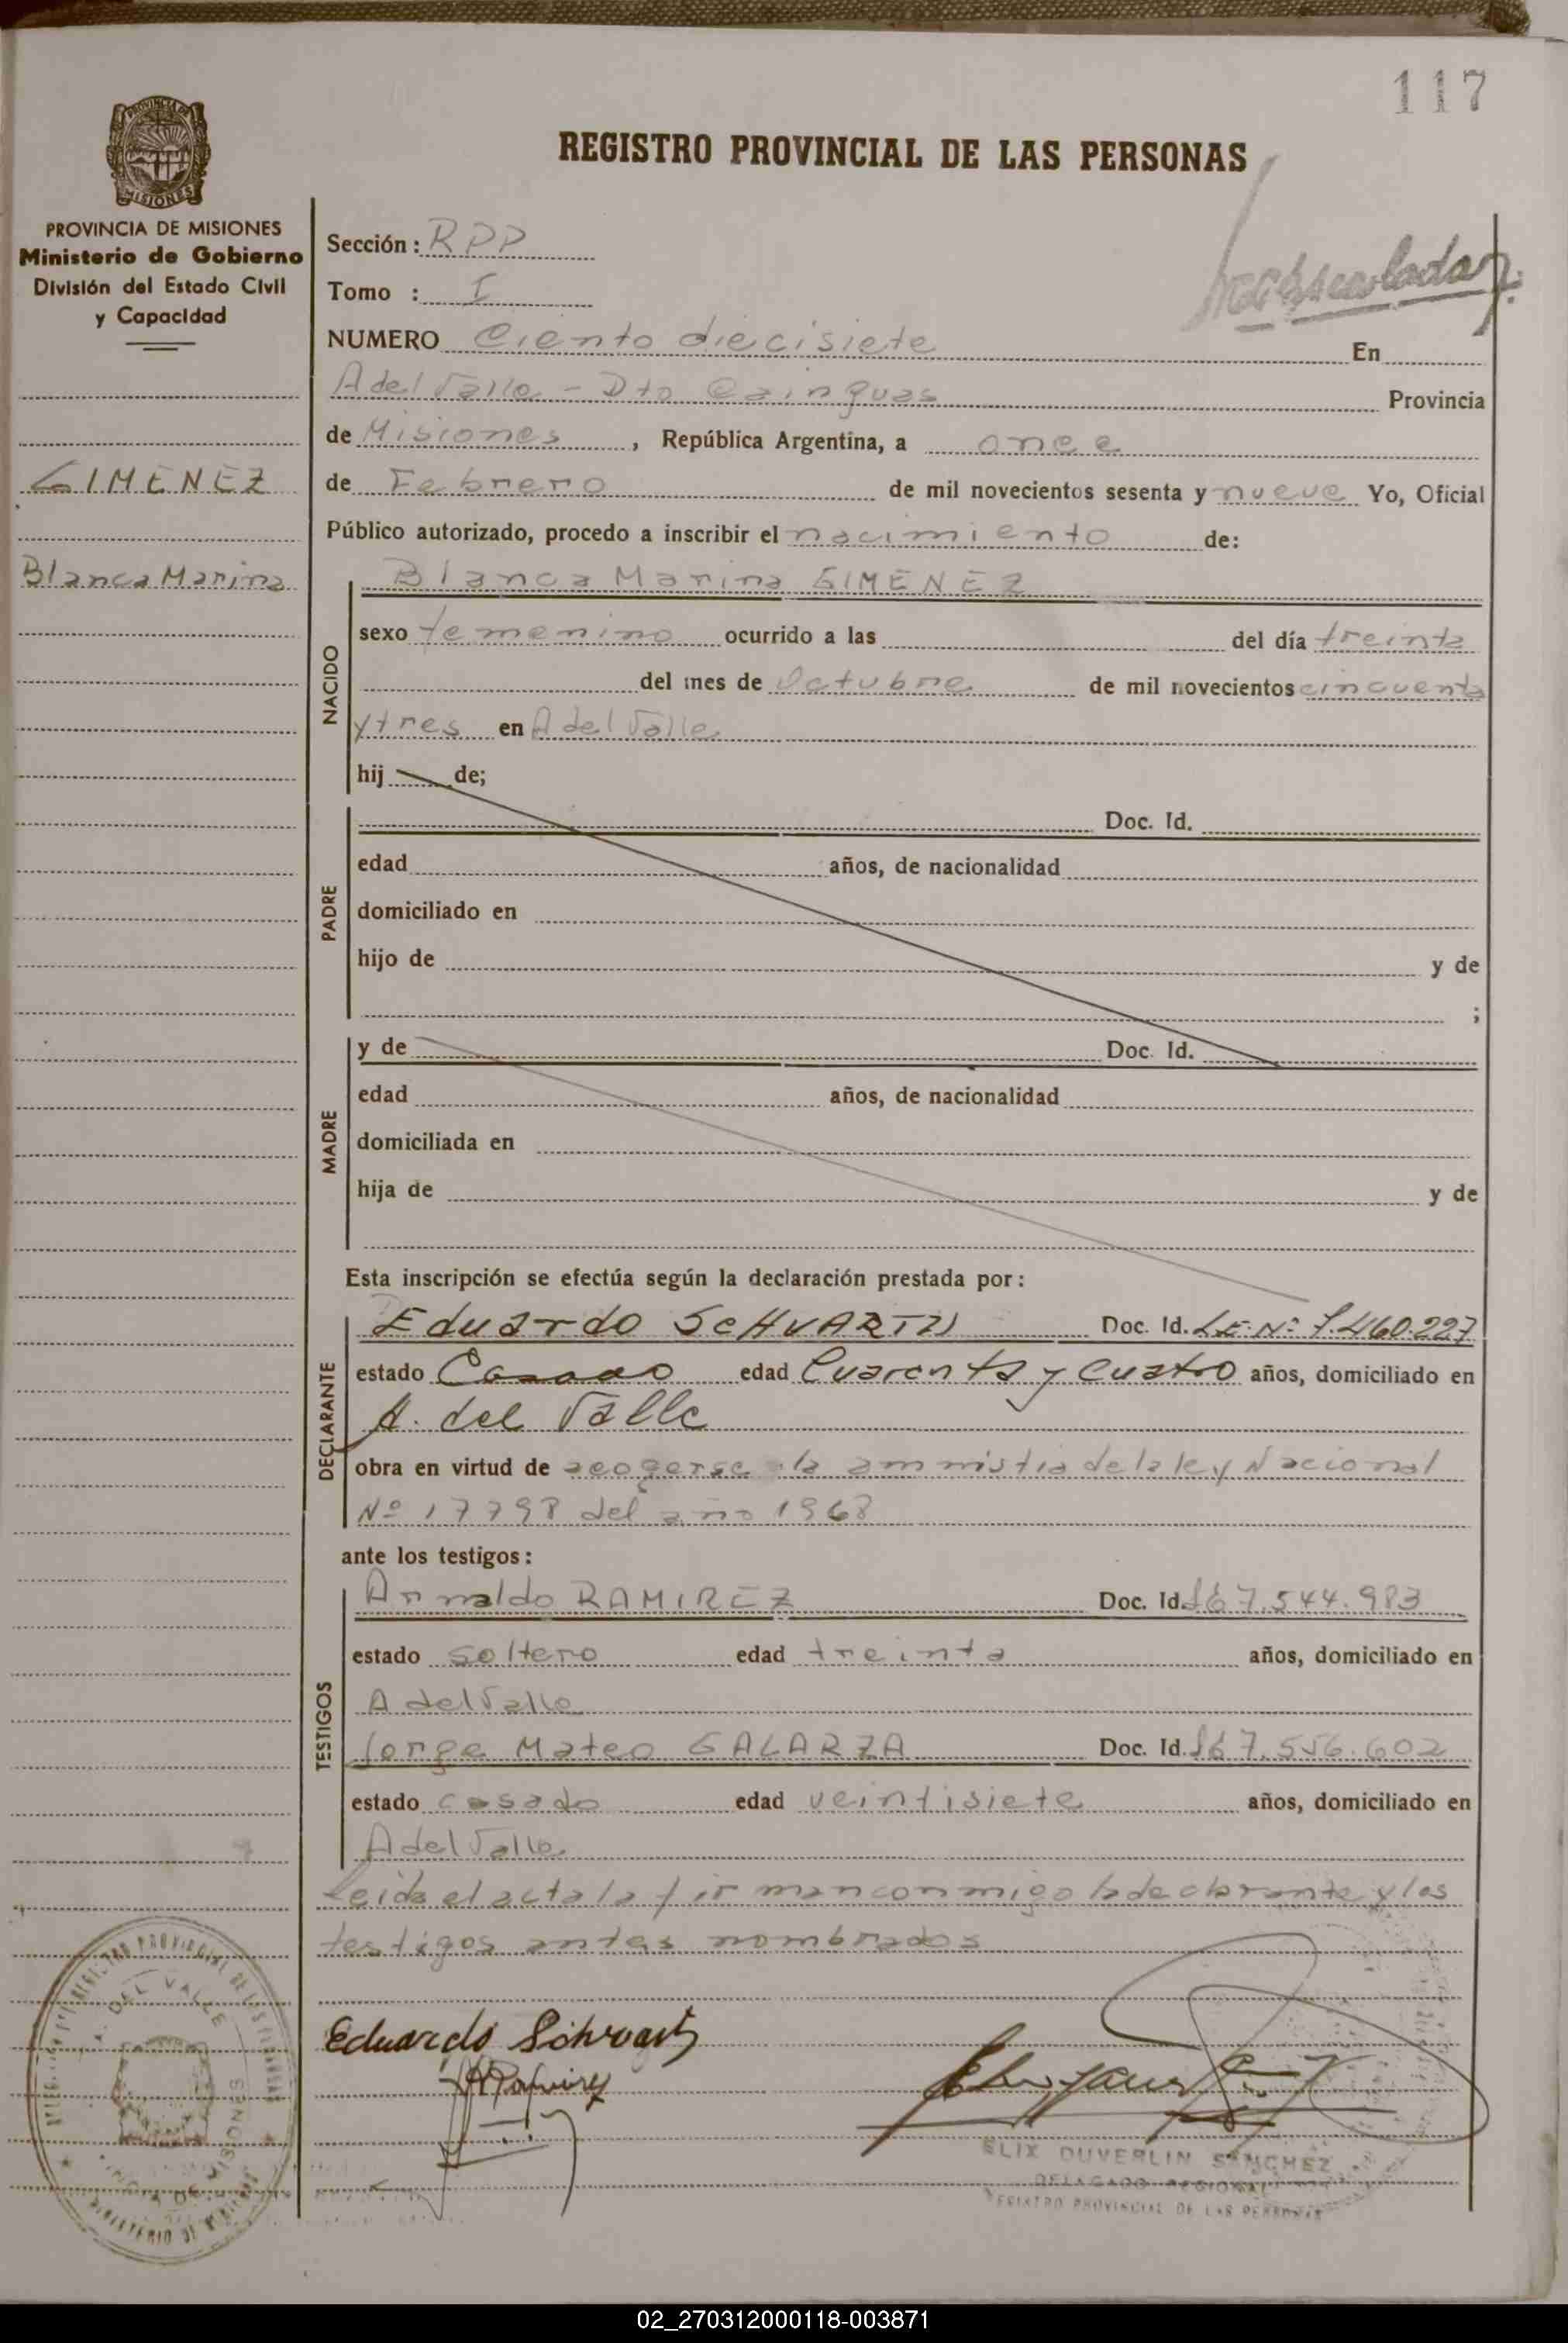 117
REGISTRO PROVINCIAL DE LAS PERSONAS
PROVINCIA DE MISIONES
Ministerio de Gobierno
División del Estado Civil
y Capacidad
GIMENEZ
Blanca Marina
Sección: RPP
Tomo : I
NUMERO Ciento diecisiete En
A del Valle - Dto Cainguas Provincia
de Misiones, República Argentina, a once
de Febrero de mil novecientos sesenta y nueve Yo, Oficial
Público autorizado, procedo a inscribir el nacimiento de:
NACIDO
Blanca Marina GIMENEZ
sexo femenino ocurrido a las del día treinta
del mes de Octubre de mil novecientos cincuenta
y tres en A del Valle
hij de;
PADRE
Doc. Id.
edad años, de nacionalidad
domiciliado en
hijo de y de
;
MADRE
y de Doc. Id.
edad años, de nacionalidad
domiciliada en
hija de y de
Esta inscripción se efectúa según la declaración prestada por:
DECLARANTE
Eduardo Doc. Id. L.E. Nº 7.460.227
estado Casado edad Cuarenta y Cuatro años, domiciliado en
A. del Valle
obra en virtud de acogerse a la amnistia de la ley Nacional
Nº 17798 del año 1968
ante los testigos:
TESTIGOS
Arnaldo RAMIREZ Doc. Id. 7.544.983
estado soltero edad treinta años, domiciliado en
A del Valle
Jorge Mateo GALARZA Doc. Id. 7.556.602
estado casado edad veintisiete años, domiciliado en
A del Valle
Leida el acta la firman conmigo la declarante y los
testigos antes nombrados
Eduardo
ELIX DUVERLIN SANCHEZ
DELEGADO REGIONAL
REGISTRO PROVINCIAL DE LAS PERSONAS
02_270312000118-003871